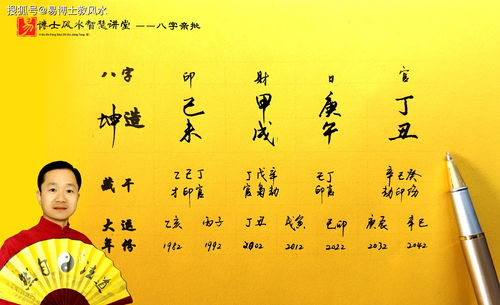 搜狐号@易博士教风水
易 博士风水智慧讲堂 ——八字亲批
八字 印 财 日 官
坤造 己 甲 庚 丁
未 戌 午 丑
藏干 乙己丁 丁戊辛 己丁 辛己癸
才印官 官枭劫 印官 劫印伤
大运 乙亥 丙子 丁丑 戊寅 己卯 庚辰 辛巳
年份 1982 1992 2002 2012 2022 2032 2042
然自法道